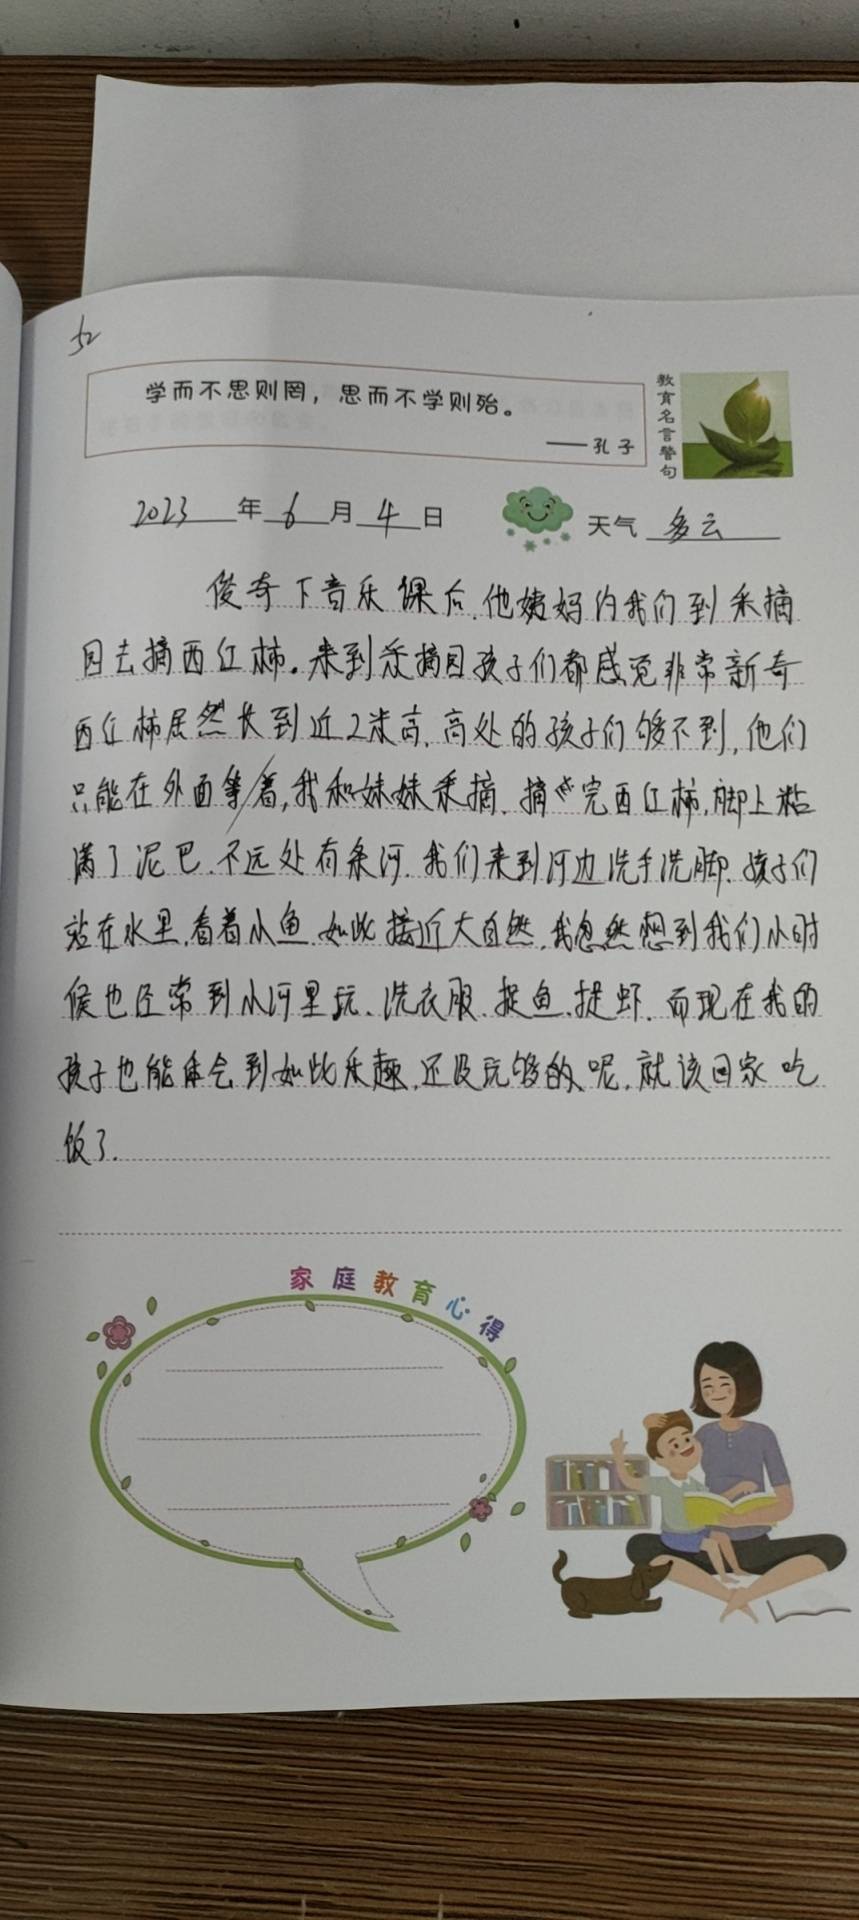 52
学而不思则罔，思而不学则殆。
——孔子
教育名言警句
2023年6月4日 天气 多云
俊奇下音乐课后,他姨妈约我们到采摘
园去摘西红柿。来到采摘园孩子们都感觉非常新奇
西红柿居然长到近2米高,高处的孩子们够不到,他们
只能在外面等着,我和妹妹采摘,摘完西红柿,脚上粘
满了泥巴,不远处有条河,我们来到河边洗手洗脚,孩子们
站在水里,看着小鱼,如此接近大自然,我忽然想到我们小时
候也经常到小河里玩、洗衣服、捉鱼、捉虾,而现在我的
孩子也能体会到如此乐趣,还没玩够的呢,就该回家吃
饭了.
家庭教育心得